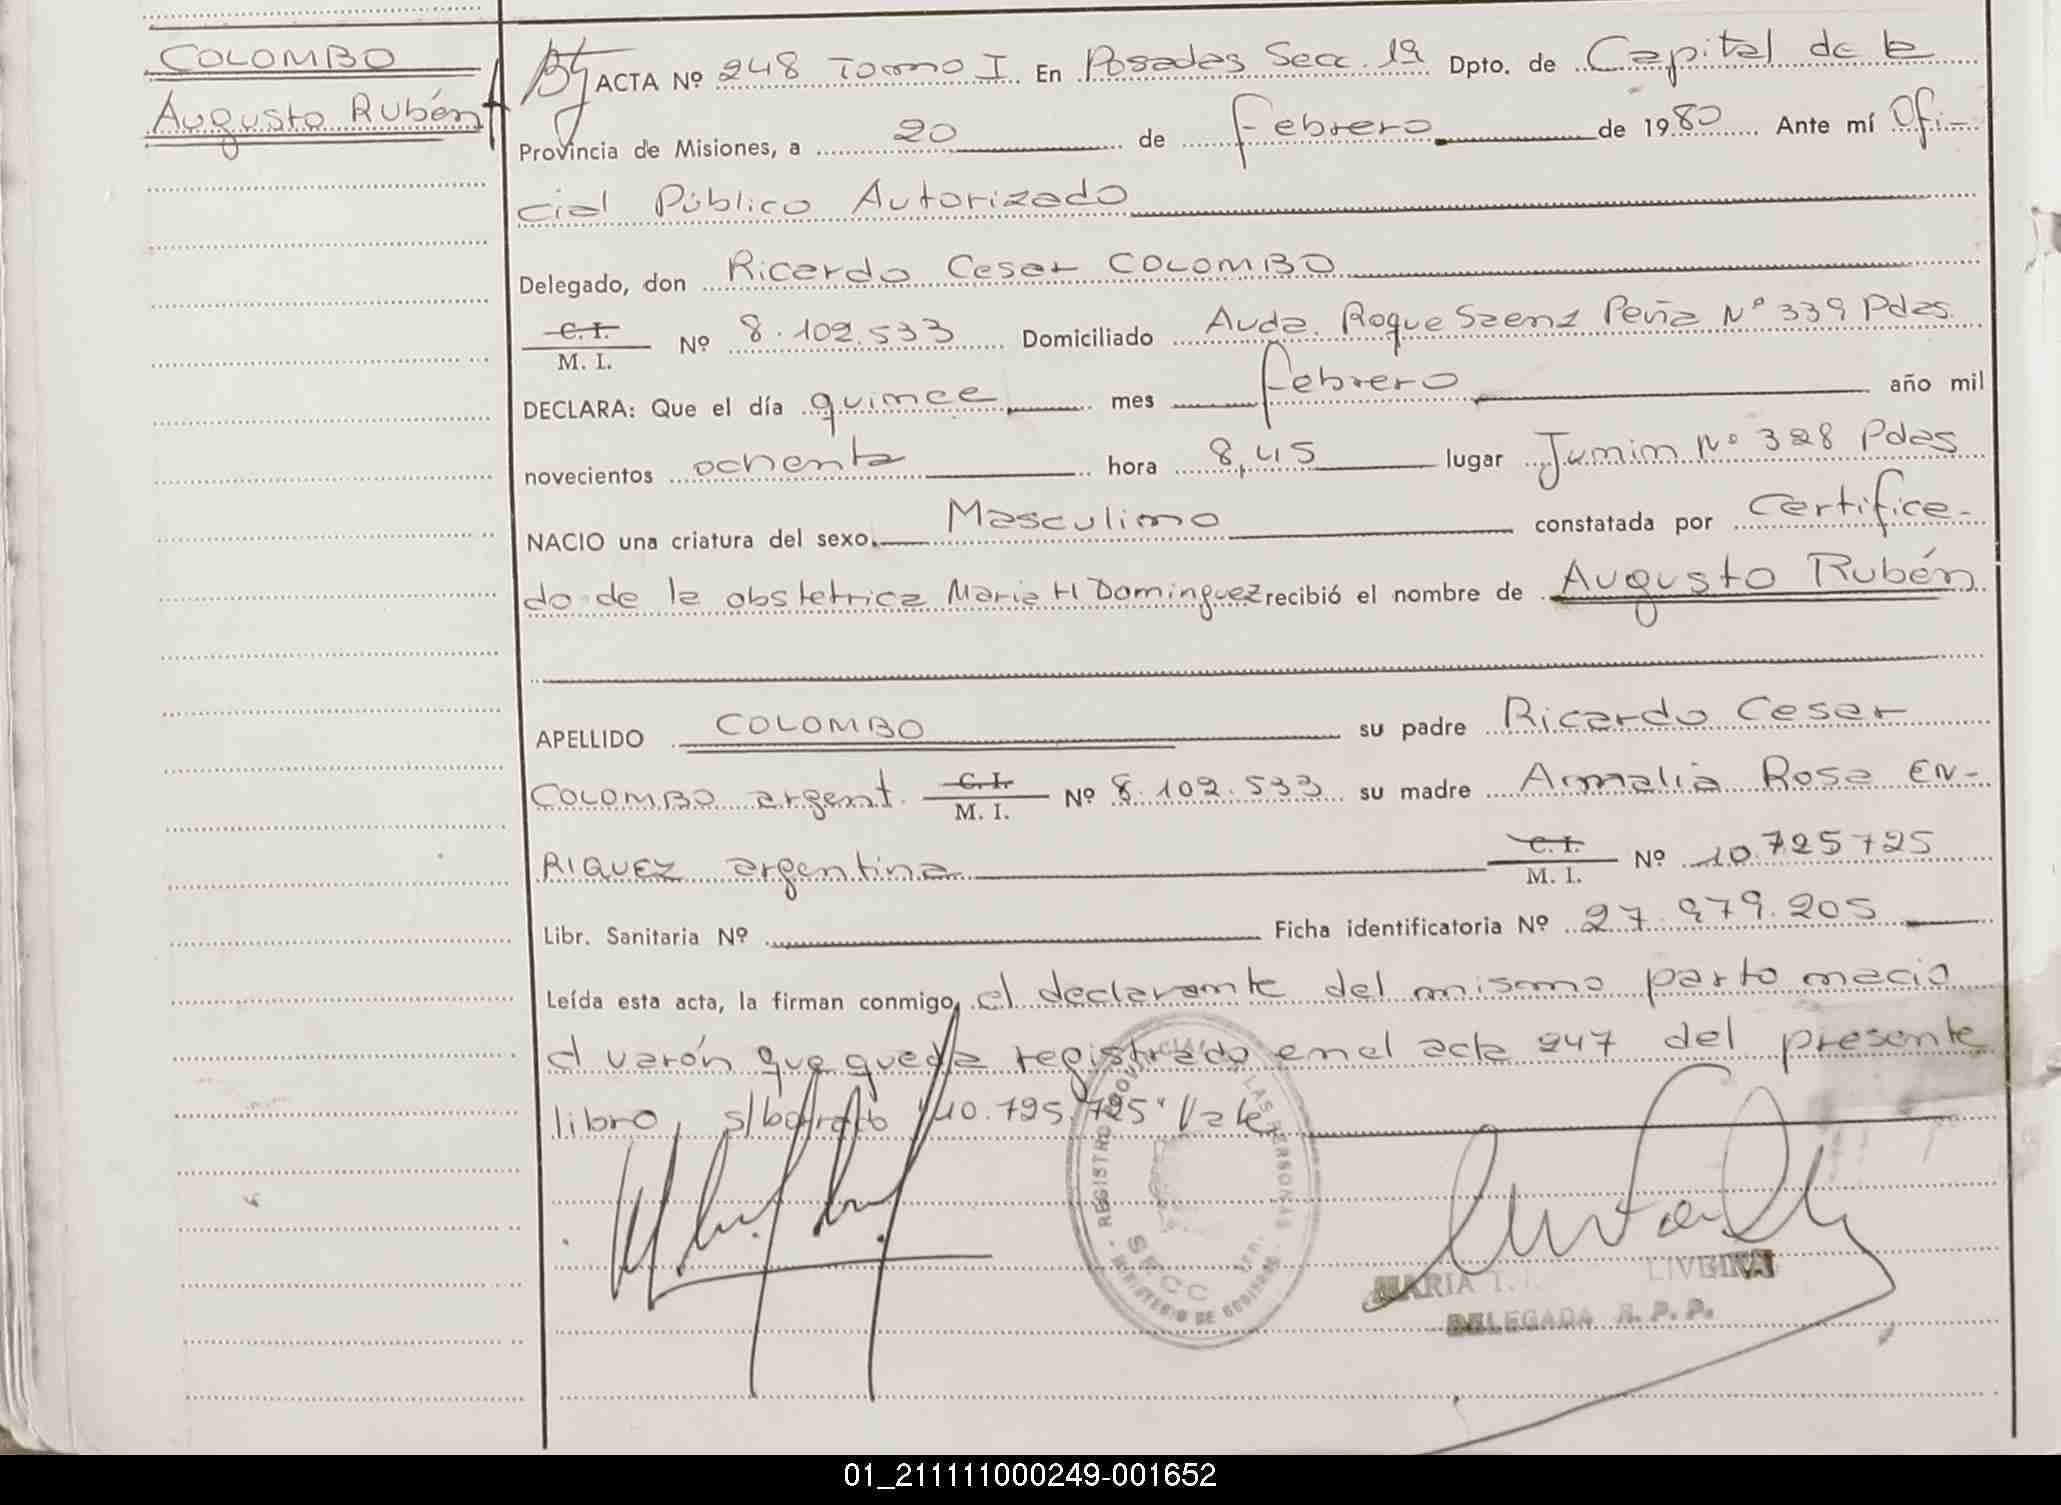 COLOMBO
Augusto Rubén
ACTA Nº 248 Tomo I En Posadas Secc. 1ª Dpto. de Capital de la
Provincia de Misiones, a 20 de Febrero de 1980 Ante mí Ofi-
cial Público Autorizado
Delegado, don Ricardo Cesar COLOMBO
C. I.
M. I.
Nº 8.102.533 Domiciliado Avda. Roque Saenz Peña Nº 339 Pdas.
DECLARA: Que el día quince mes febrero año mil
novecientos ochenta hora 8,45 lugar Junin Nº 328 Pdas
NACIO una criatura del sexo Masculino constatada por certifica-
do de la obstetrica Maria H Dominguez recibió el nombre de Augusto Rubén
APELLIDO COLOMBO su padre Ricardo Cesar
COLOMBO argent. C. I. M. I. Nº 8.102.533 su madre Amalia Rosa EN-
RIQUEZ argentina C. I. M. I. Nº 10.725725
Libr. Sanitaria Nº Ficha identificatoria Nº 27.979.205
Leída esta acta, la firman conmigo, el declarante del mismo parto nacio
el varón que queda registrado en el acta 247 del presente
libro, s/borrado "10.725.725" Vale
REGISTRO PROVINCIAL DE LAS PERSONAS
SECC
MINISTERIO DE GOBIERNO
MARIA
DELEGADA R. P. P.
01_211111000249-001652